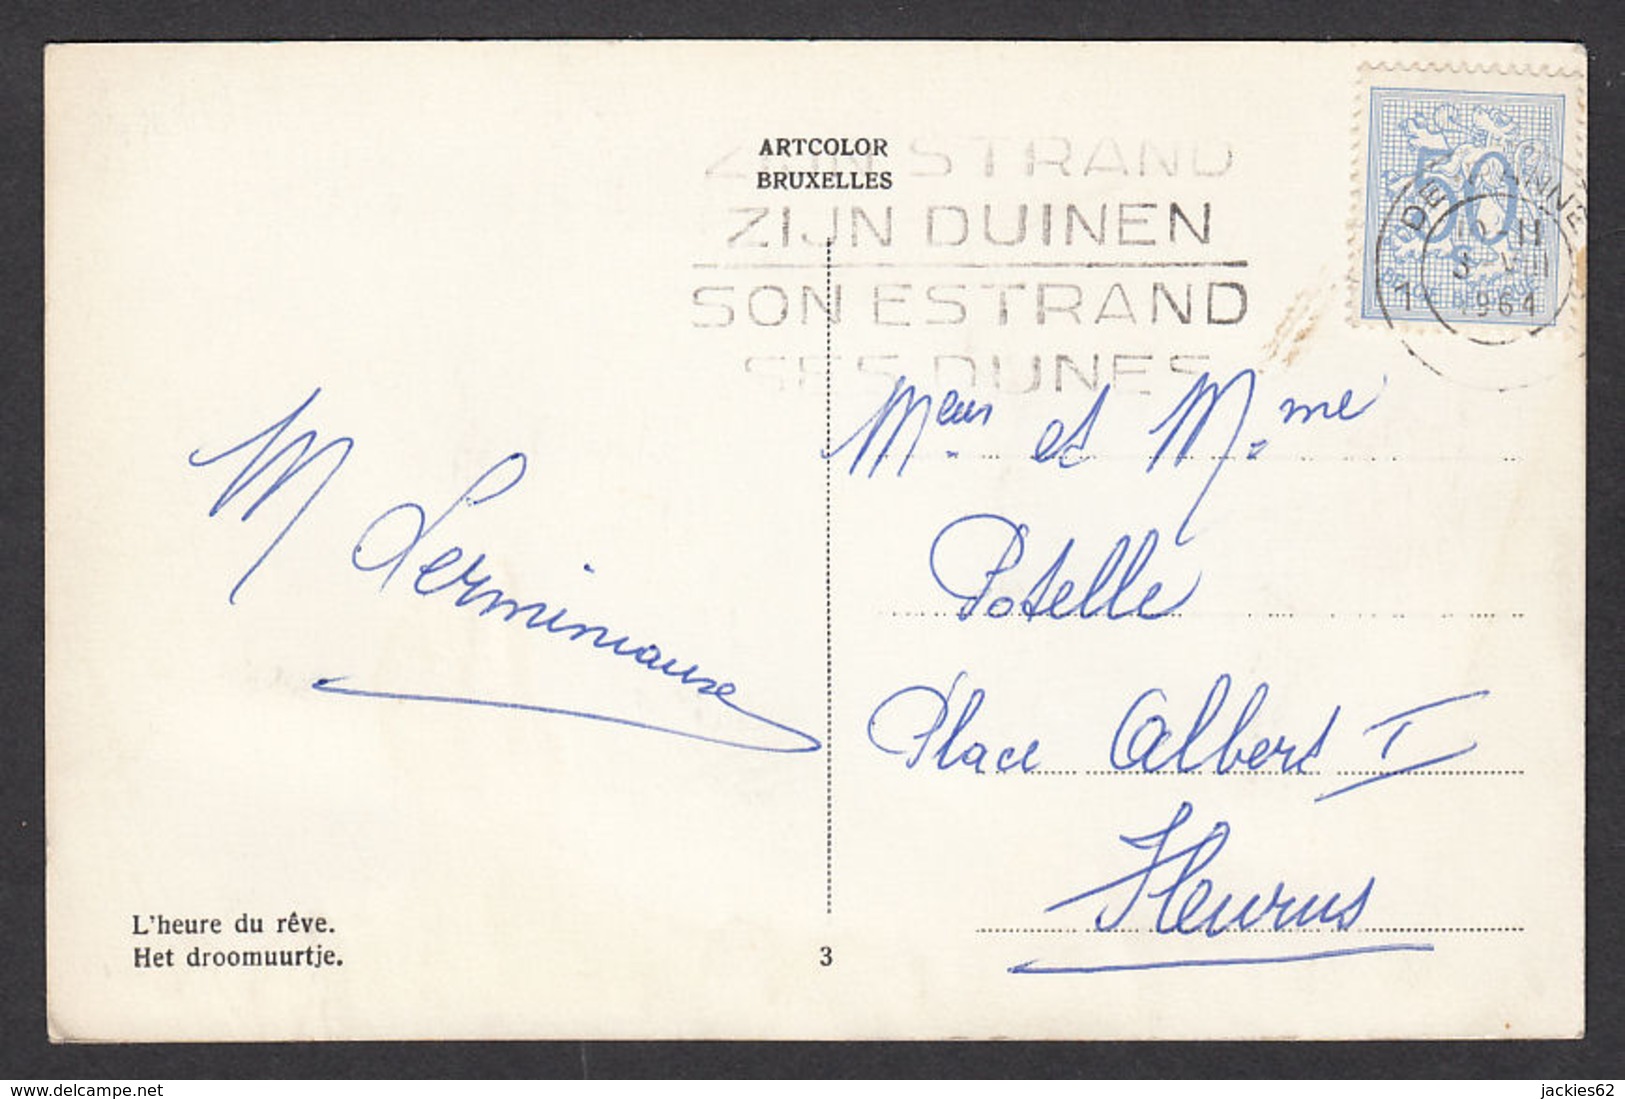 ARTCOLOR
BRUXELLES
ZIJN STRAND
ZIJN DUINEN
SON ESTRAND
SES DUNES
50
BELGIE BELGIQUE
DE PANNE
1964
1
Meur et Mme
Potelle
Place Albert I
Fleurus
M Lerminiaux
L'heure du rêve.
Het droomuurtje.
3
www.delcampe.net
jackies62